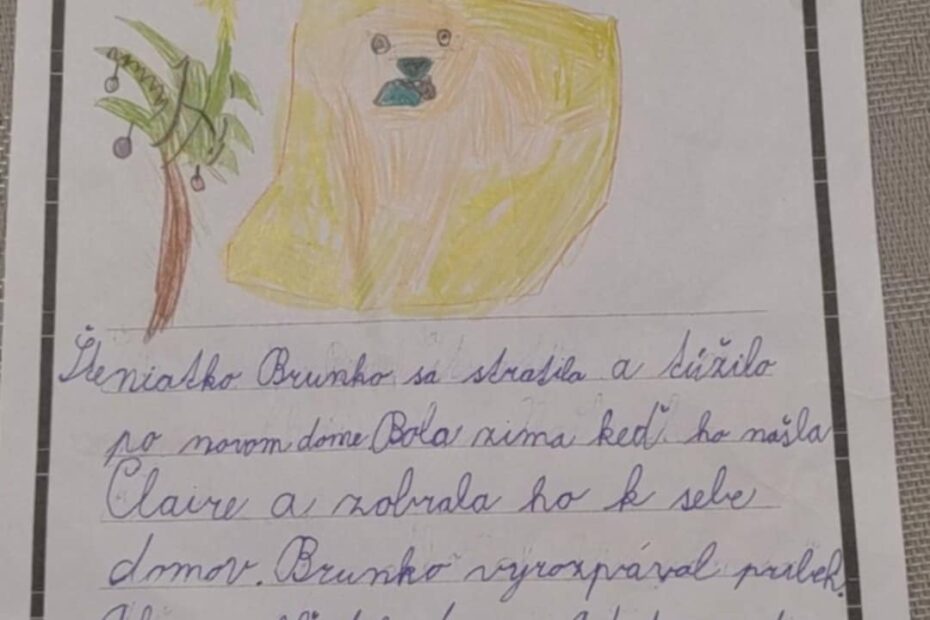 Šteniatko Brunko sa stratila a túžilo
po novom dome Bola zima keď ho našla
Claire a zobrala ho k sebe
domov. Brunko vyrozpával príbeh.